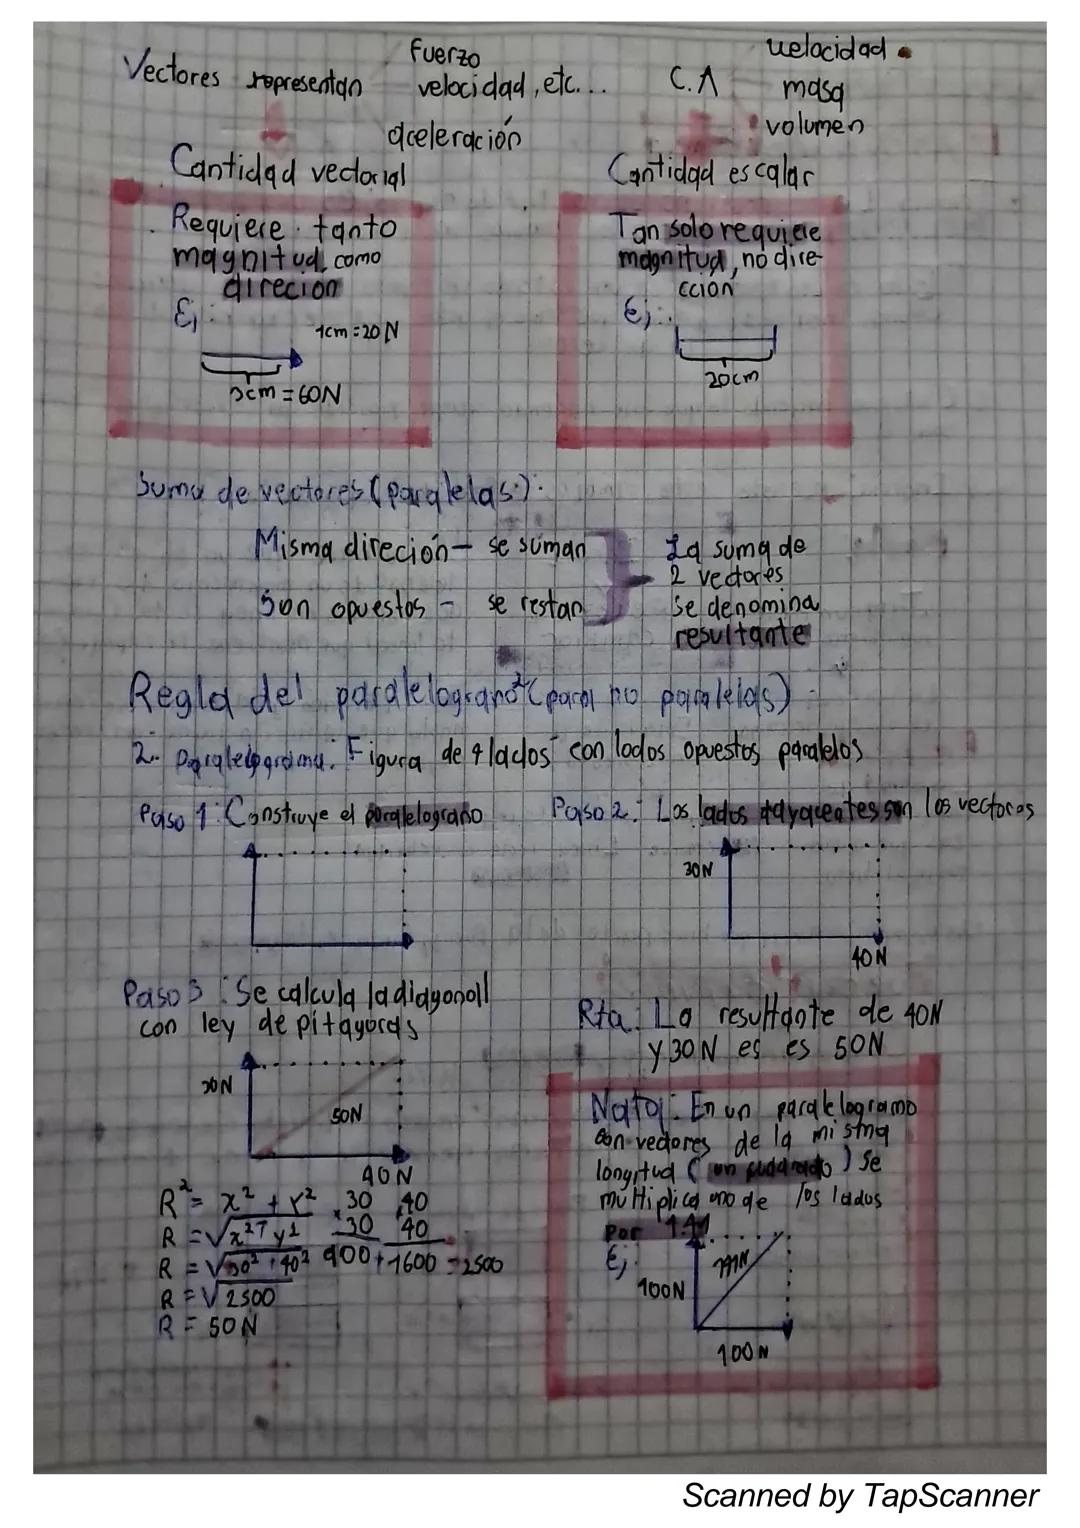 Vectores representan
Fuerzo
velocidad, etc...
aceleración
C.A
velocidad
masa
volumen
Cantidad vectorial
Requiere tanto
magnitud como
direción
Ej:
1cm = 20 N
3cm = 60N
Cantidad escalar
Tan solo requiere
magnitud, no dire-
cción
Ej:
20cm
Suma de vectores (paralelas):
Misma direción - se suman
Son opuestos - se restan
La suma de
2 vectores
se denomina
resultante
Regla del paralelograno² (para no paralelas)
2.- Paralelogramo: Figura de 4 lados con lados opuestos paralelos
Paso 1: Construye el paralelograno
Paso 2: Los lados adyacentes son los vectores
30N
40N
Paso 3: Se calcula la diagonal
con ley de pitagoras
30N
50N
40N
R² = x² + y²
R = √x² + y²
R = √30² + 40²
R = √2500
R = 50N
30 40
x 30 x 40
900 + 1600 = 2500
Rta: La resultante de 40N
y 30N es es 50N
Nota: En un paralelogramo
con vectores de la misma
longitud (un cuadrado) se
multiplica uno de los lados
por 1.41
Ej:
100N
141N
100N
Scanned by TapScanner